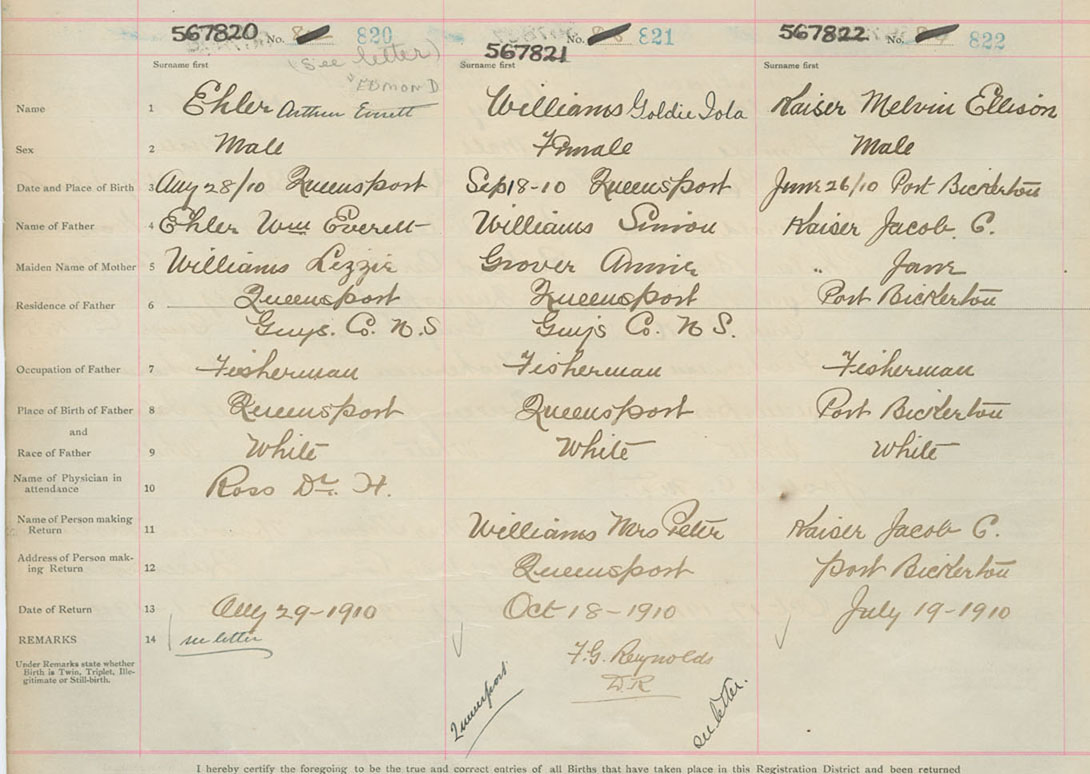 567820 No. 820 567821 No. 821 567822 No. 822
(see letter)
Surname first Surname first Surname first
"EDMOND
Name 1 Ehler Arthur Everett Williams Goldie Iola Kaiser Melvin Ellison
Sex 2 Male Female Male
Date and Place of Birth 3 Aug 28/10 Queensport Sep 18-10 Queensport June 26/10 Port Bickerton
Name of Father 4 Ehler Wm Everett Williams Simon Kaiser Jacob C.
Maiden Name of Mother 5 Williams Lizzie Grover Annie " Jane
Residence of Father 6 Queensport Queensport Port Bickerton
Guys. Co. N.S Guys Co. N S.
Occupation of Father 7 Fisherman Fisherman Fisherman
Place of Birth of Father 8 Queensport Queensport Port Bickerton
and
Race of Father 9 White White White
Name of Physician in attendance 10 Ross Dr. H.
Name of Person making Return 11 Williams Mrs Peter Kaiser Jacob C.
Address of Person mak-ing Return 12 Queensport Port Bickerton
Date of Return 13 Aug 29-1910 Oct 18-1910 July 19-1910
REMARKS 14 see letter
Under Remarks state whether
Birth is Twin, Triplet, Ille-
gitimate or Still-birth.
F.G. Reynolds
D.R
Queensport
see letter.
I hereby certify the foregoing to be the true and correct entries of all Births that have taken place in this Registration District and been returned